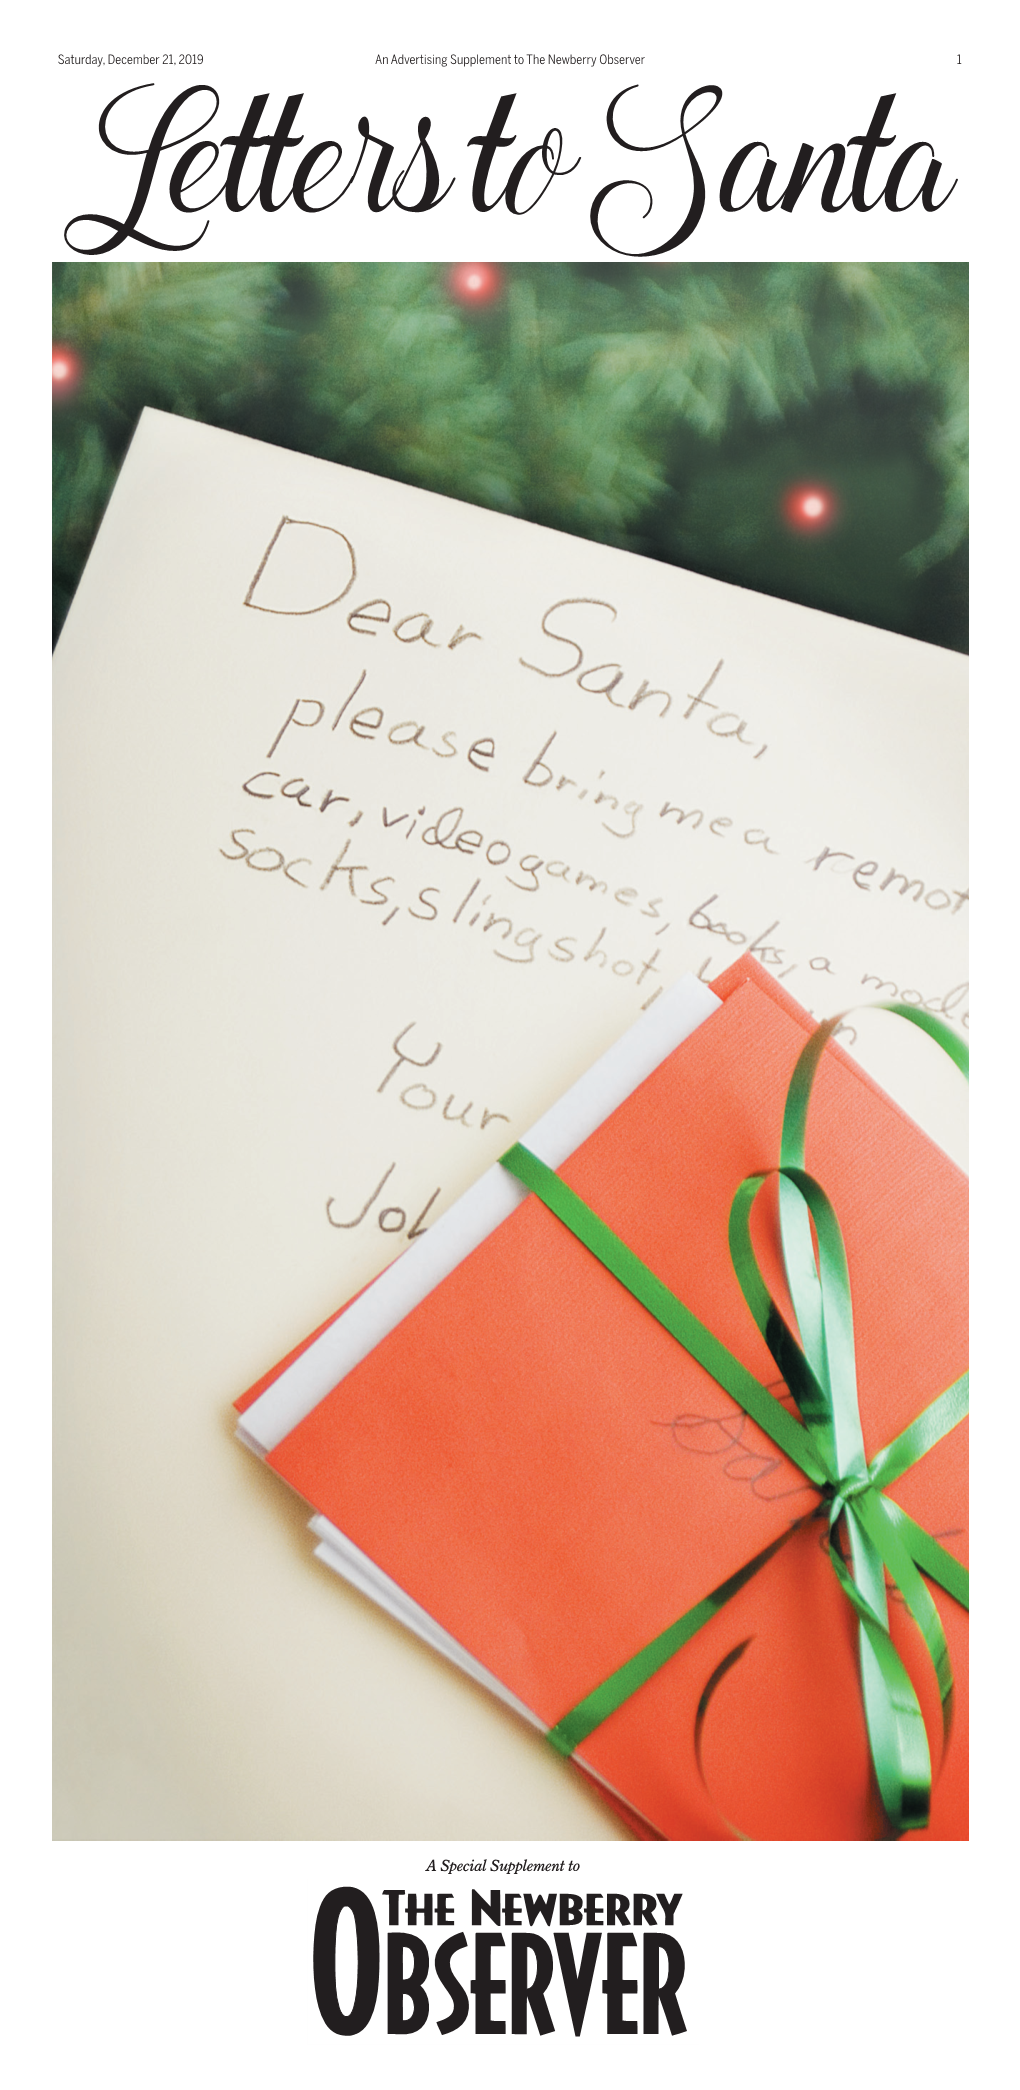 Saturday, December 21, 2019 An Advertising Supplement to The Newberry Observer 1
Letters to Santa
Dear Santa,
please bring me a remot
car, videogames, books, a mode
socks, slingshot,
Your
Joh
Sa
A Special Supplement to
THE NEWBERRY
OBSERVER